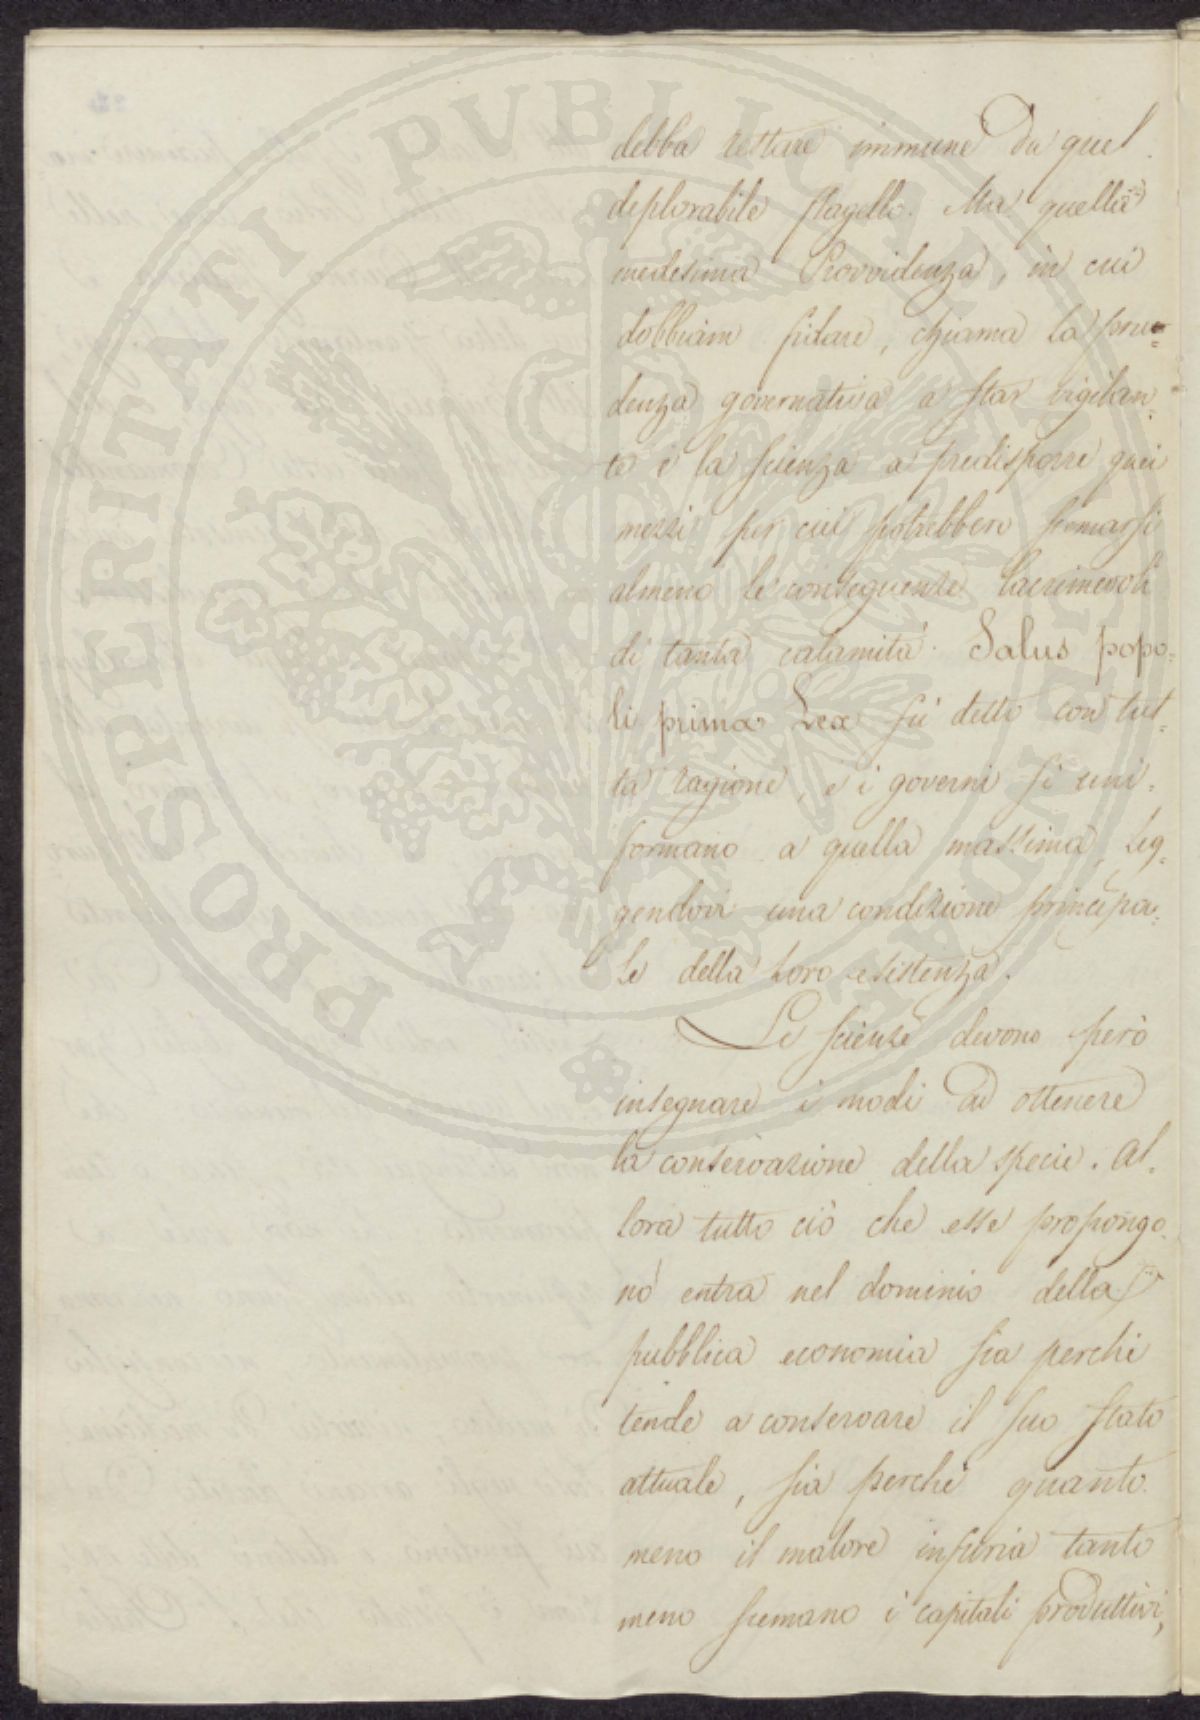 debba restare immune da quel
deplorabile flagello. Ma quella
medesima Provvidenza, in cui
dobbiam fidare, chiama la pru=
denza governativa a star vigilan=
te e la scienza a predisporre quei
mezzi per cui potrebbero scemarsi
almeno le conseguenze lacrimevoli
di tanta calamità. Salus popo=
li prima Lex fù detto con tut=
ta ragione, e i governi si uni=
formano a quella massima, leg=
gendovi una condizione principa=
le della loro esistenza.
Le scienze devono però
insegnare i modi ad ottenere
la conservazione della specie. Al=
lora tutto ciò che esse propongo=
no entra nel dominio della
pubblica economia sia perchè
tende a conservare il suo stato
attuale, sia perchè quanto
meno il malore infuria tanto
meno scemano i capitali produttivi,
PROSPERITATI PUBLICAE AUGENDAE